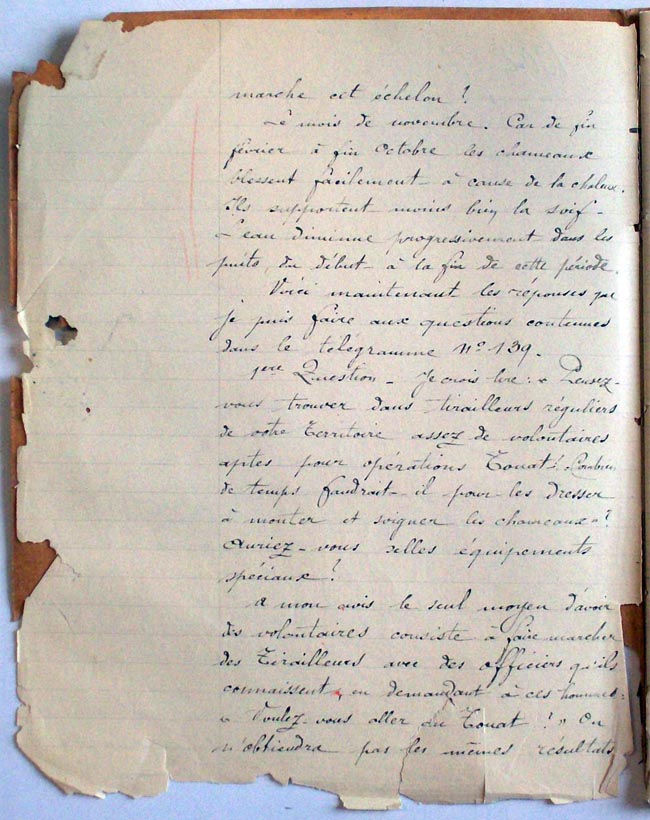 marche cet échelon ?
Le mois de novembre. Car de fin
février à fin Octobre les chameaux
blessent facilement à cause de la chaleur.
Ils supportent moins bien la soif -
L'eau diminue progressivement dans les
puits, du début à la fin de cette période.
Voici maintenant les réponses que
je puis faire aux questions contenues
dans le télégramme No 139.
1ère Question - Je crois lire : « Pensez-
vous trouver dans tirailleurs réguliers
de votre Territoire assez de volontaires
aptes pour opérations Touat ? Combien
de temps faudrait-il pour les dresser
à monter et soigner les chameaux » ?
Auriez-vous selles équipements
spéciaux ?
A mon avis le seul moyen d'avoir
des volontaires consiste à faire marcher
des Tirailleurs avec des officiers qu'ils
connaissent, en demandant à ces hommes :
« Voulez-vous aller au Touat ! » On
n'obtiendra pas les mêmes résultats